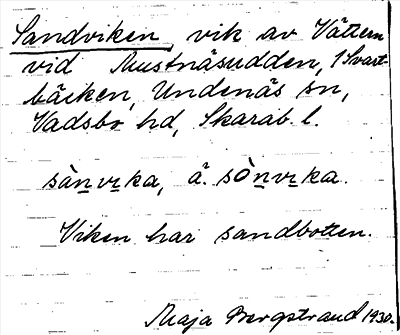 Sandviken vik av Vättern
vid Mustnäsudden, i Svart-
bäcken, Undenäs sn,
Vadsbo hd, Skarab. l.
sàn̲vɩka, ä. sòn̲vɩka.
Viken har sandbotten.
Maja Bergstrand 1930.